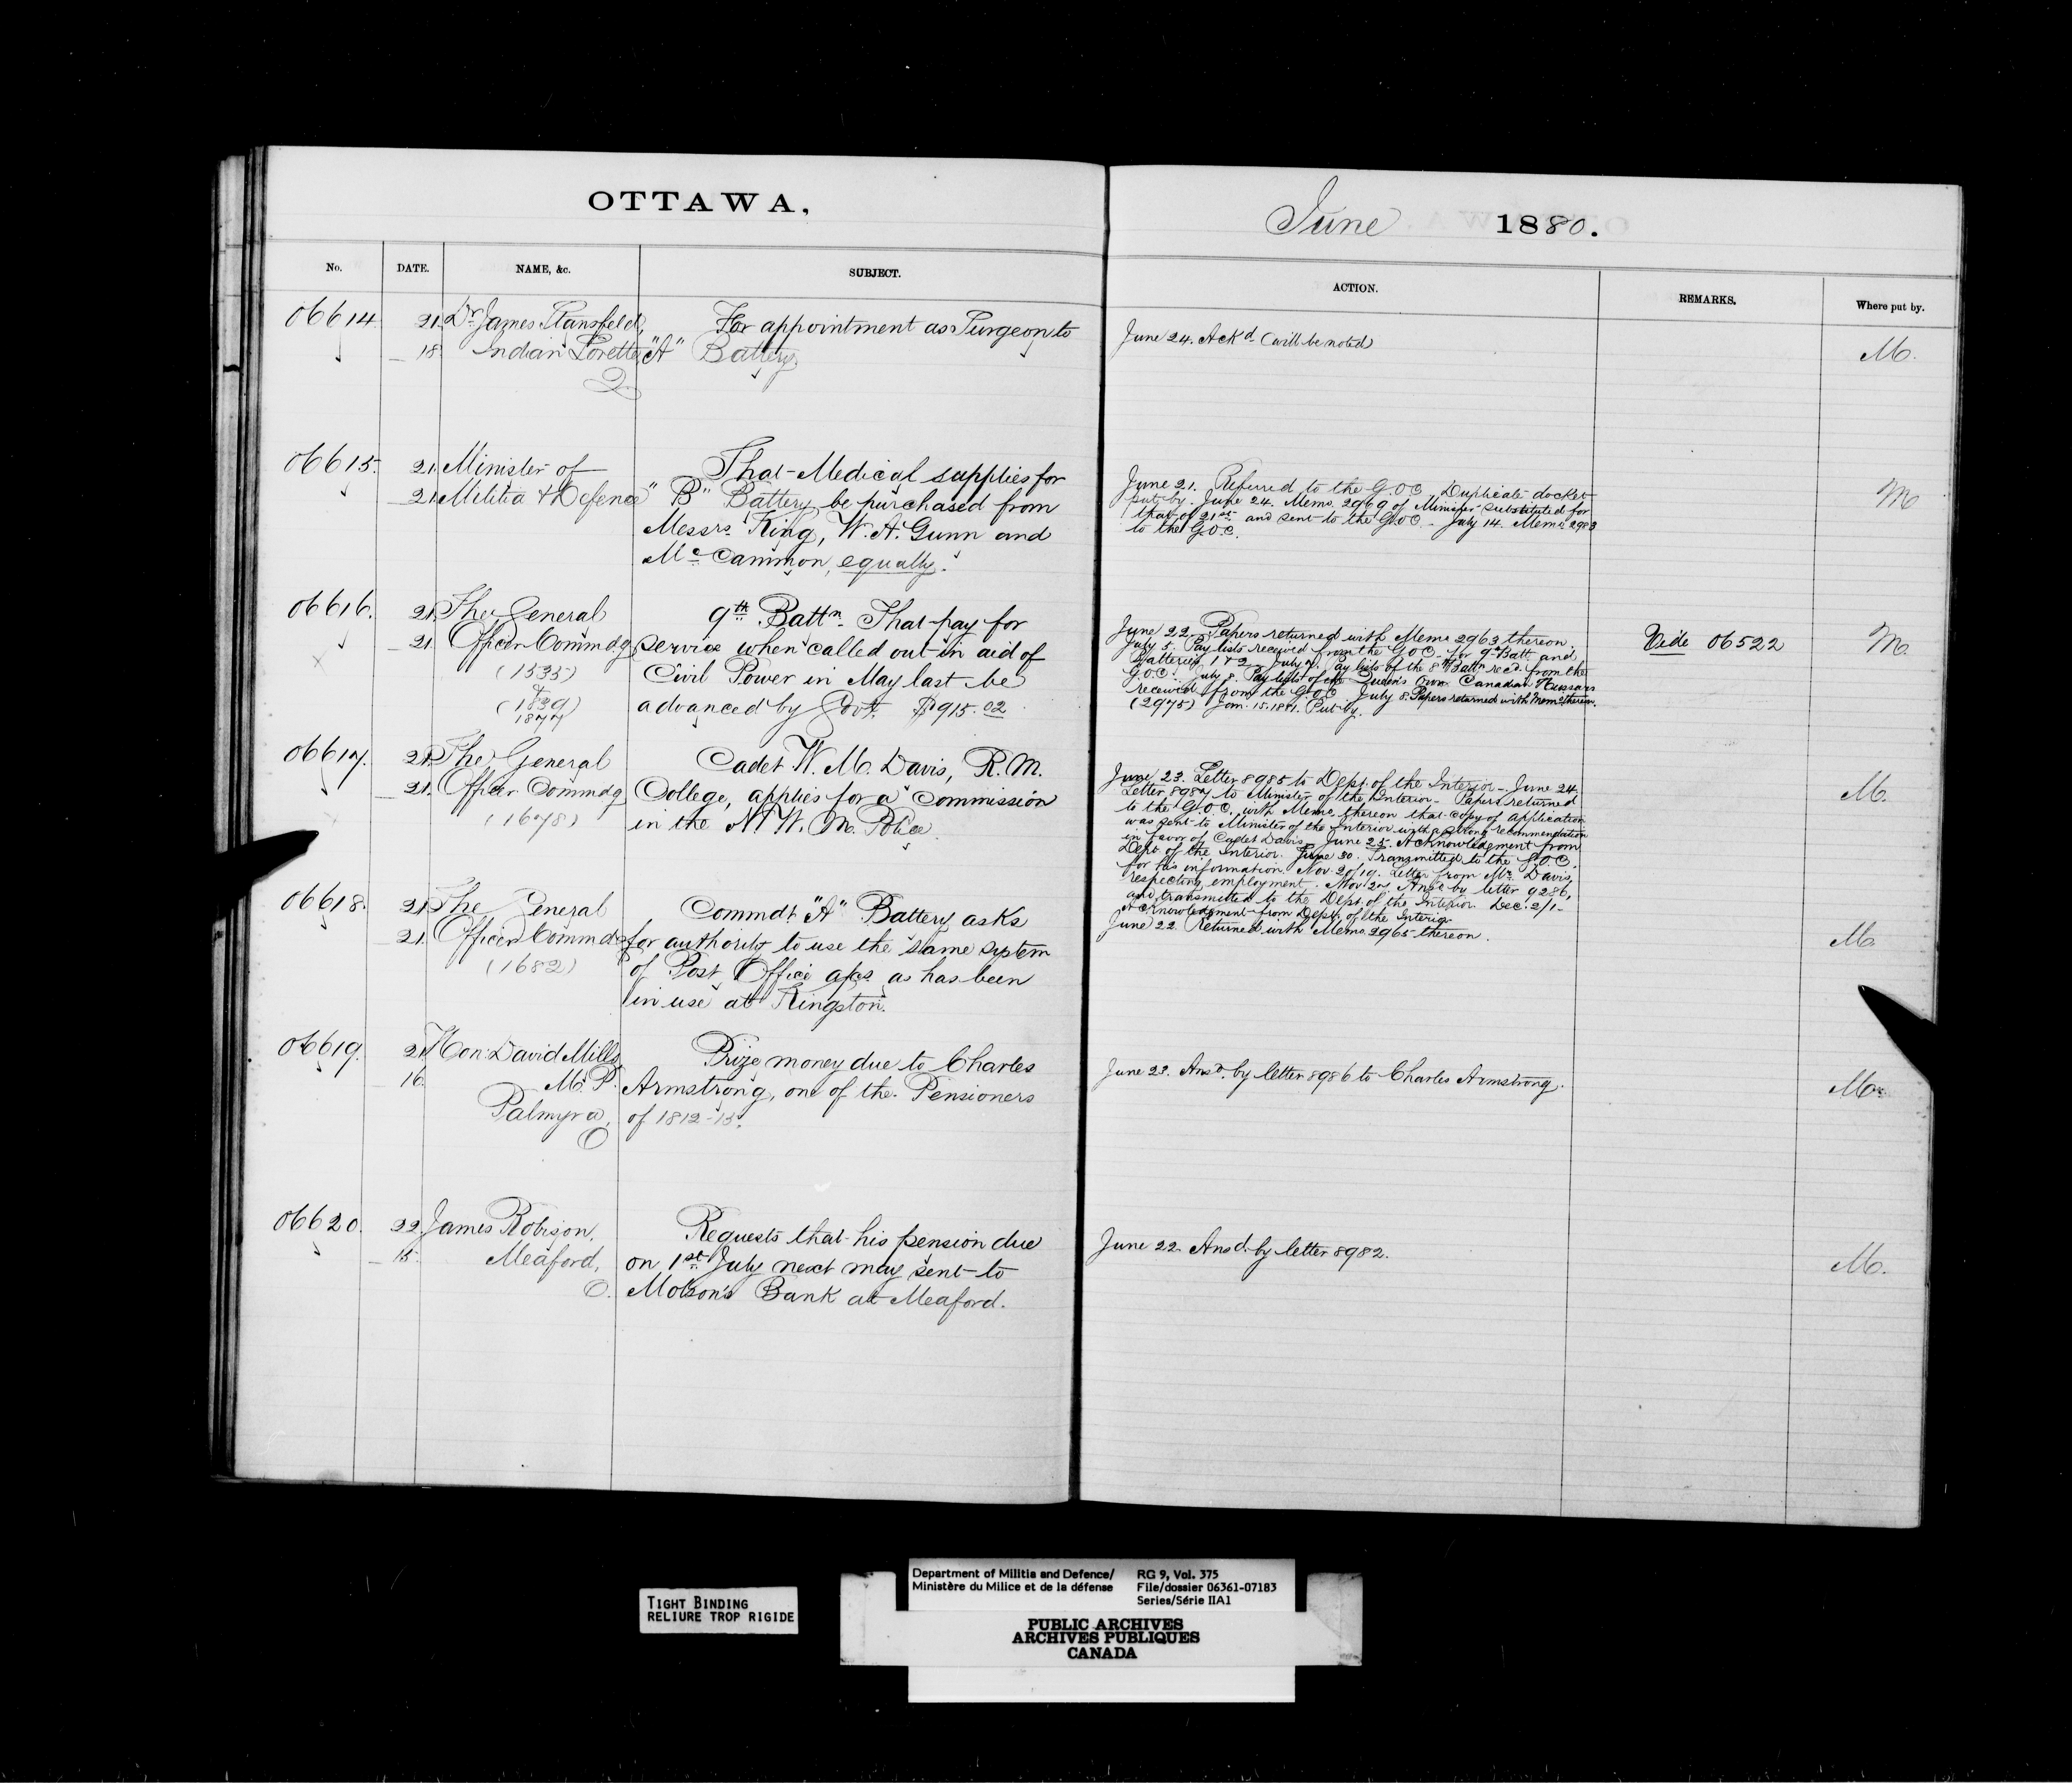 OTTAWA,
June 1880.
No. DATE. NAME, &c. SUBJECT. ACTION. REMARKS. Where put by.
06614 21. Dr James Stansfeld, For appointment as Surgeon to
18 Indian Lorette "A" Battery.
Q
June 24. Ackd (will be noted)
M.
06615. 21. Minister of That Medical supplies for
21. Militia & Defence "B" Battery be purchased from
Messrs King, W. A. Gunn and
Mc Cammon, equally.
June 21. Referred to the G.O.C. Duplicate docket
put by. June 24. Memo. 2969 of Minister substituted for
that of 21st and sent to the G.O.C. - July 14. Memo 2983
to the G.O.C.
M
06616. 21. The General 9th Battn That pay for
21. Officer Commdg service when called out in aid of
(1535) Civil Power in May last be
&
(1839) advanced by Govt. $915.02
1877
June 22. Papers returned with Memo 2963 thereon.
July 5. Pay lists received from the G.O.C. for 9th Batt. and
Batteries 1 & 2. July 7. Pay lists of the 8th Battn recd. from the
G.O.C. July 8. Pay lists of the Queen's Own Canadian Hussars
received from the G.O.C. July 8. Papers returned with Memo thereon.
(2975) Jan. 15. 1881. Put by.
Vide 06522
M.
06617. 21. The General Cadet W. M. Davis, R. M.
21. Officer Commdg College, applies for a Commission
(1678) in the N. W. M. Police.
June 23. Letter 8985 to Dept. of the Interior - June 24.
Letter 8987 to Minister of the Interior - Papers returned
to the G.O.C. with Memo thereon that copy of application
was sent to Minister of the Interior with a strong recommendation
in favor of Cadet Davis. June 25. Acknowledgment from
Dept of the Interior. June 30. Transmitted to the G.O.C.
for his information. Nov. 20/19. Letter from Mr. Davis,
respecting employment. Nov. 22. Ansd by letter 9286,
and transmitted to the Dept. of the Interior. Dec. 2/1 -
Acknowledgment from Dept. of the Interior
M.
06618. 21. The General Commdt "A" Battery asks
21. Officer Commdg for authority to use the same system
(1682) of Post Office a/cs as has been
in use at Kingston.
June 22. Returned with Memo. 2965 thereon.
M.
06619. 21. Hon: David Mills Prize money due to Charles
16. M.P. Armstrong, one of the Pensioners
Palmyra, of 1812-15.
O
June 23. Ansd. by letter 8986 to Charles Armstrong.
M.
06620. 22. James Robison, Requests that his pension due
15. Meaford, on 1st July next may sent to
O. Molson's Bank at Meaford.
June 22. Ansd. by letter 8982.
M.
TIGHT BINDING
RELIURE TROP RIGIDE
Department of Militia and Defence/ RG 9, Vol. 375
Ministère du Milice et de la défense File/dossier 06361-07183
Series/Série IIA1
PUBLIC ARCHIVES
ARCHIVES PUBLIQUES
CANADA